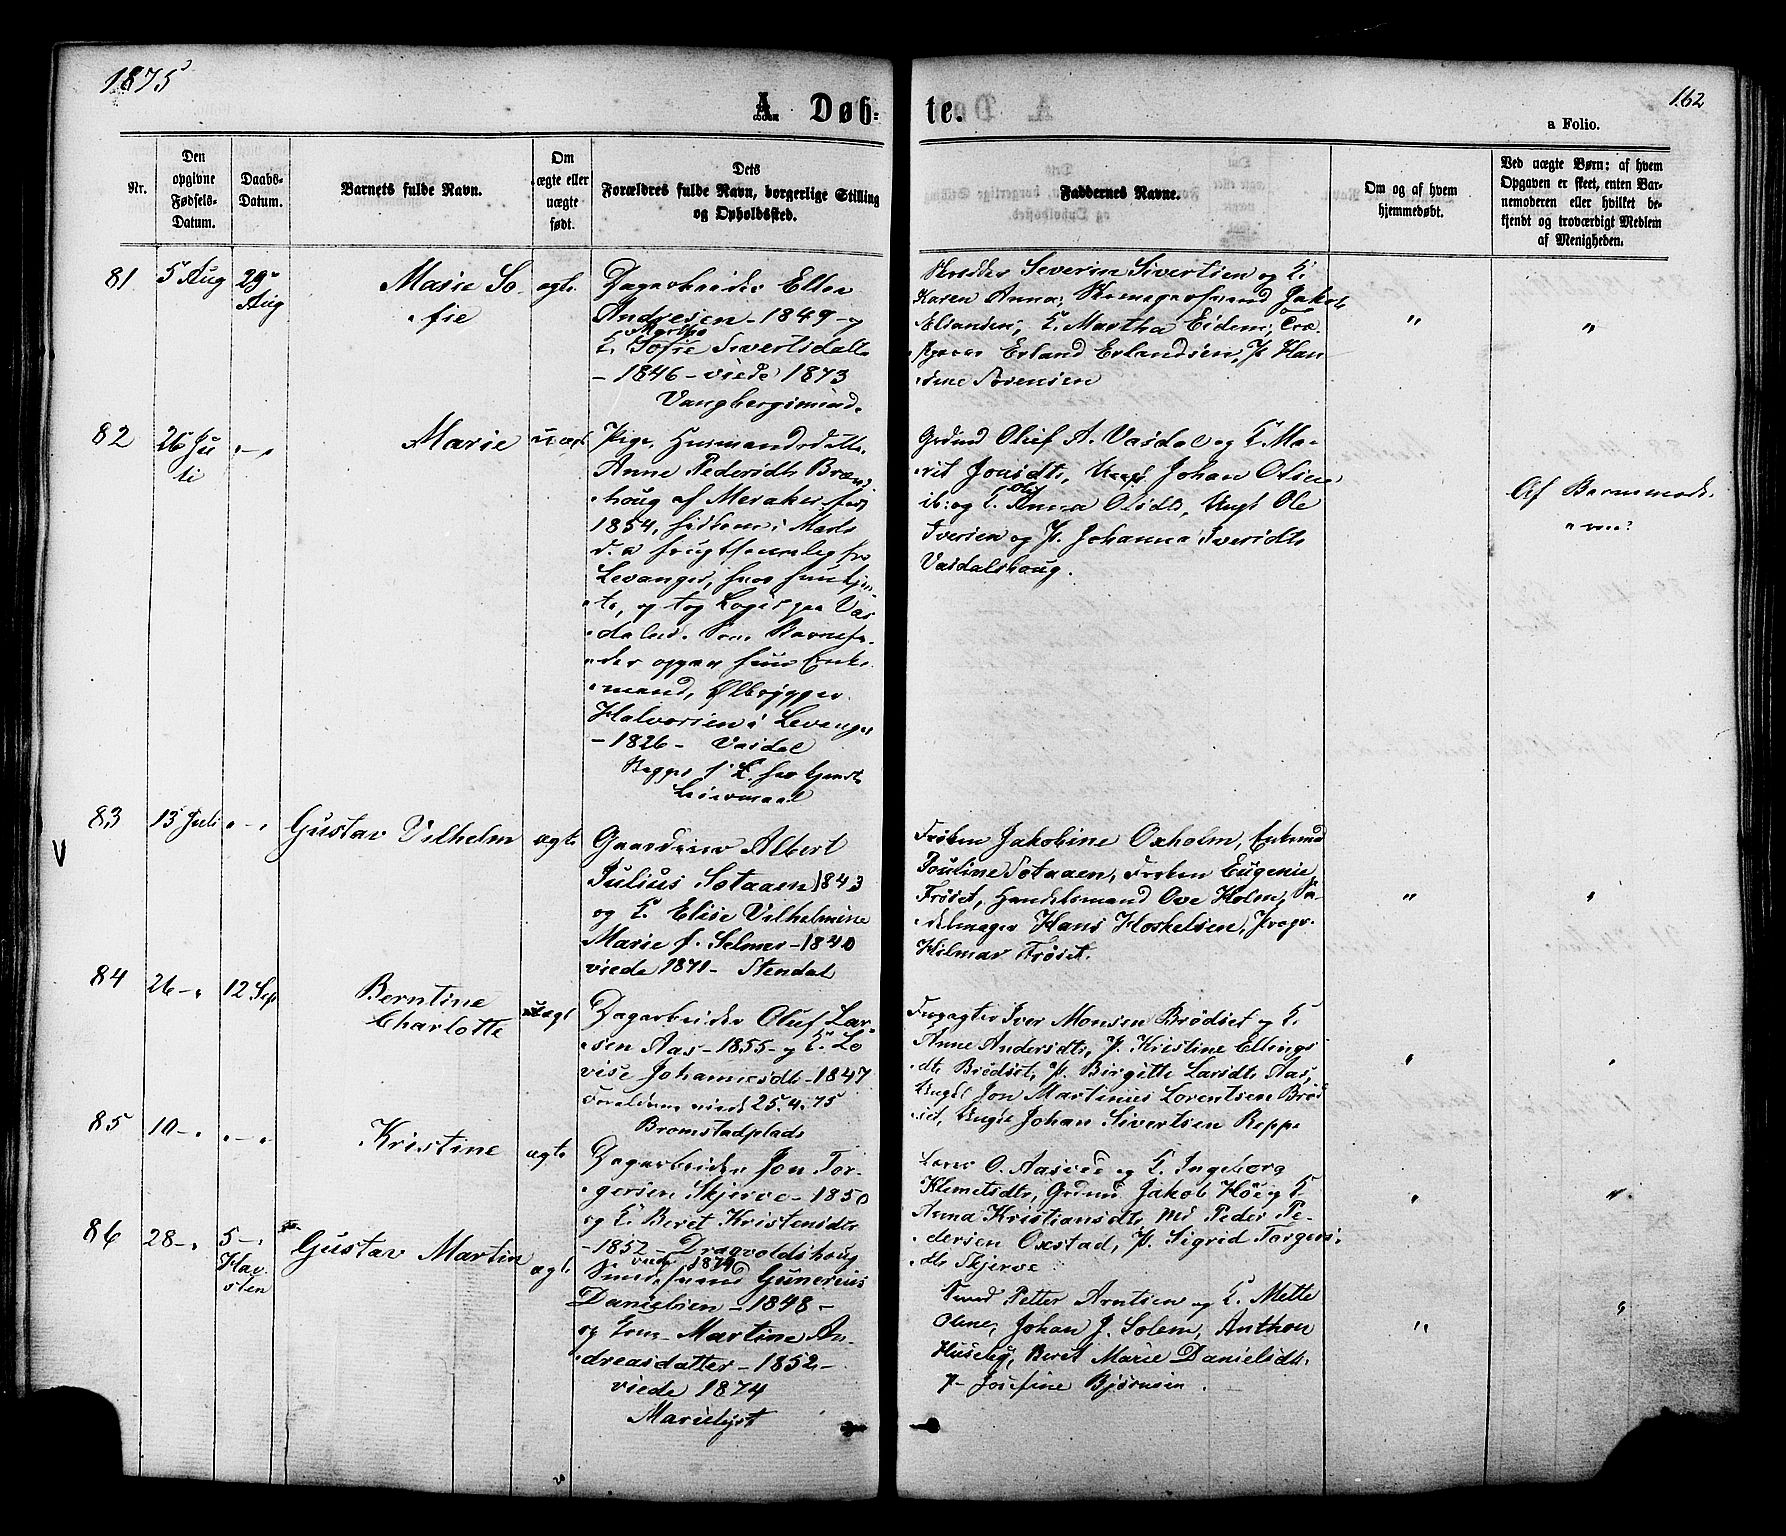 1875
162
A. Døb-
te.
a Folio.
Nr.
Den
opgivne
Fødsels-
Datum.
Daabs-
Datum.
Barnets fulde Navn.
Om
ægte eller
uægte
født.
Dets
Forældres fulde Navn, borgerlige Stilling
og Opholdssted.
Faddernes Navne.
Om og af hvem
hjemmedøbt.
Ved uægte Børn: af hvem
Opgaven er skeet, enten Bar-
nemoderen eller hvilket be-
kjendt og troværdigt Medlem
af Menigheden.
81
5 Aug
29
Aug
Marie So-
fie
ægte
Dagarbeider Ellen
Andresen - 1849 - og
Marthe
E. Sofie Sivertsdatt.
- 1846 - viede 1873
Severin Sivertsen og E.
Karen Anna, Skomagersvend Jakob
Eliandsen, E. Martha Eidem,
Erland Erlandsen, P. Han-
sine Sørensen
"
"
82
26 Ju-
li
" - "
Marie
uægt
Pige, Husmandsdatter
Anne Pedersdtr Bræn-
houg af Meraker, født
1854, hidkom i Marts
d. a. frugtsommelig fra
Levanger, hvor hun tjen-
te, og tog Logis paa Vas-
dalen. Som Barnefa-
der opgav hun Enke-
mand, Ølbrygger
Halvorsen i Levanger
- 1826 - Vasdal
Begges 1 L. hvo tjenst
Leiermaal
Grdmd Oluf A. Vasdal og E. Ma-
rit Jonsdtr, Ungk Johan Olsen
ib: og E. Anna Olsdtr, Ungk Ole
Iversen og P. Johanna Iversdtr
Vasdalshoug.
Af Barnemode-
ren
83
13 Juli
" - "
Gustav Vilhelm
ægte
Gaardeier Albert
Julius Sotaaen 1843
og E. Elise Vilhelmine
Marie f. Selmer - 1840
viede 1871 - Stendal
Frøken Jakobine Oxholm, Enkemd
Pouline Sotaaen, Frøken Eugenie
Frøset, Handelsmand Ove Holm, Sa-
delmager Hans Hoskelsen,
Hilmar Frøset.
"
"
84
26 - "
12 Sep
Berntine
Charlotte
uægt
Dagarbeider Oluf Lar-
sen Aas - 1855 - og E. Lo-
vise Johannesdtr - 1847
Forældrene viede 25.4.75
Bromstadplads
Forpagter Iver Monsen Brødset og E.
Anne Andersdtr, P. Kristine Ellings-
dtr Brødset, P. Birgitte Larsdtr Aas,
Ungk Jon Martinus Lorentsen Brød-
set, Ungk Johan Sivertsen Reppe
"
"
85
10 - "
" - "
Kristine
ægte
Dagarbeider Jon Tor-
gersen Skjerve - 1850
og E. Beret Kristensdtr
- 1852 - Dragvoldshoug
viede 1874
Lars O. Aasvee og E. Ingeborg
Klemetsdtr, Grdmd Jakob Høe og E.
Anna Kristiansdtr, Md Peder Pe-
dersen Oxstad, P. Sigrid Torgers-
dtr Skjerve
"
"
86
28 - "
5 - "
Hav-
sten
Gustav Martin
ægte
Gunerius
Danielsen - 1848 -
og Kone Martine An-
dreasdatter - 1852 -
viede 1874
Marielyst
Svend Petter Arntsen og E. Mette
Oline, Johan J. Solem, Anthon
Huseby, Beret Marie Danielsdtr,
P. Josefine Bjørnsen.
"
"
V